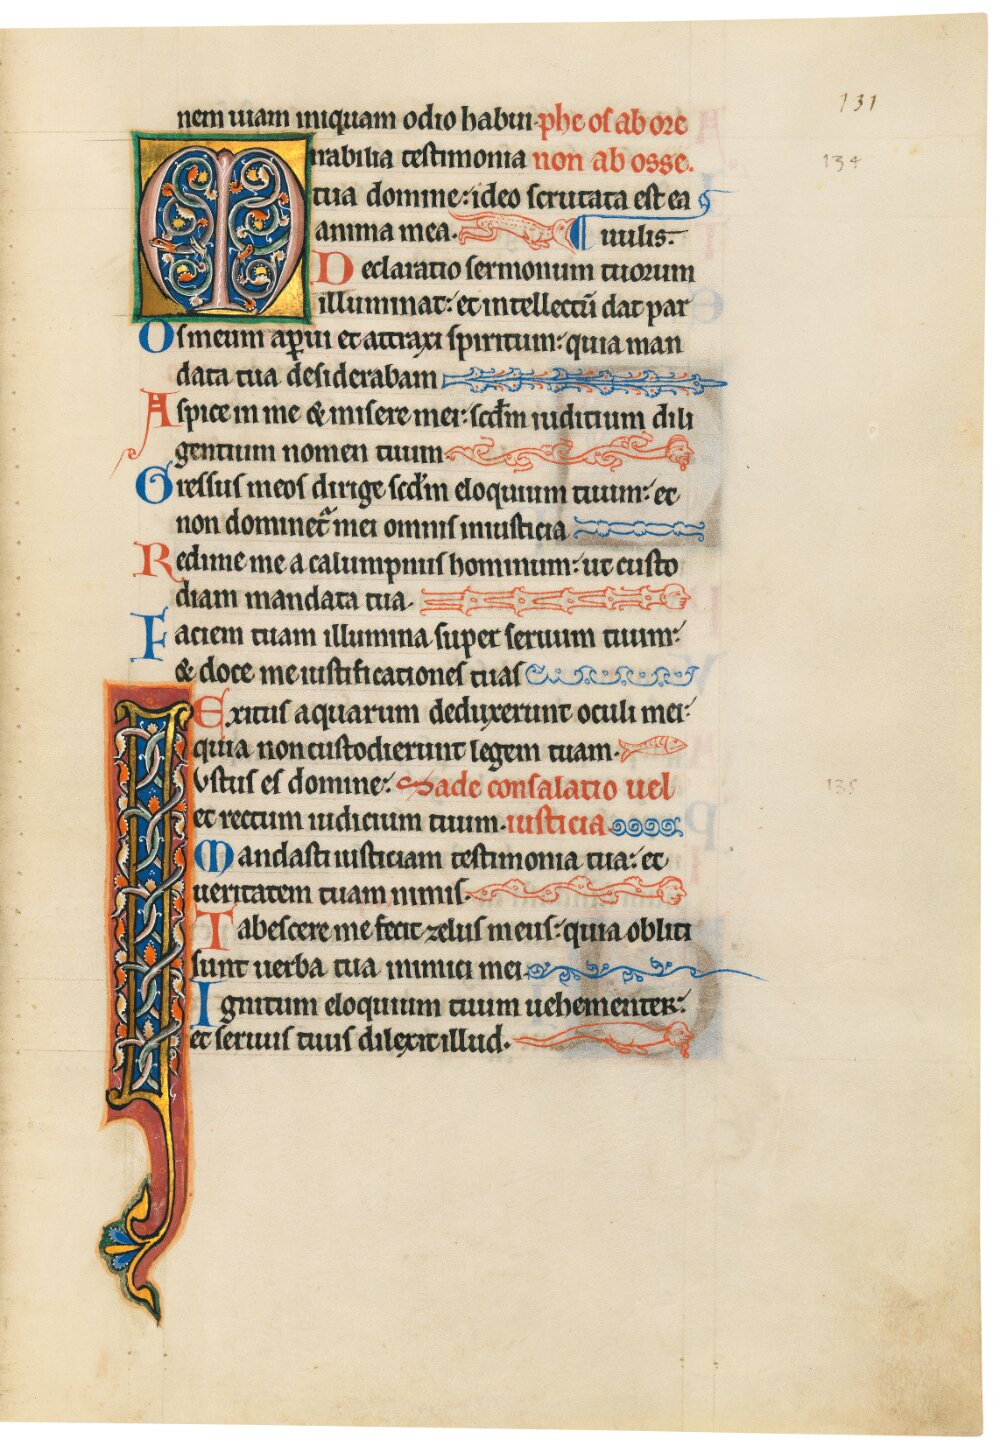 131
nem uiam iniquam odio habui. phe os ab ore
134
Mirabilia testimonia non ab osse.
tua domine: ideo scrutata est ea
anima mea. uulis.
Declaratio sermonum tuorum
illuminat: et intellectū dat par
Os meum apui et attraxi spiritum: quia man
data tua desiderabam
Aspice in me & misere mei: scdm iudicium dili
gentium nomen tuum
Gressus meos dirige scdm eloquium tuum: et
non dominet mei omnis iniusticia
Redime me a calumpniis hominum: ut custo
diam mandata tua.
Faciem tuam illumina super seruum tuum:
& doce me iustificationes tuas
Exitus aquarum deduxerunt oculi mei:
quia non custodierunt legem tuam.
Iustus es domine: Sade consalatio uel
135
et rectum iudicium tuum. iusticia
Mandasti iusticiam testimonia tua: et
ueritatem tuam nimis.
Tabescere me fecit zelus meus: quia obliti
sunt uerba tua inimici mei
Ignitum eloquium tuum uehementer:
et seruus tuus dilexit illud.